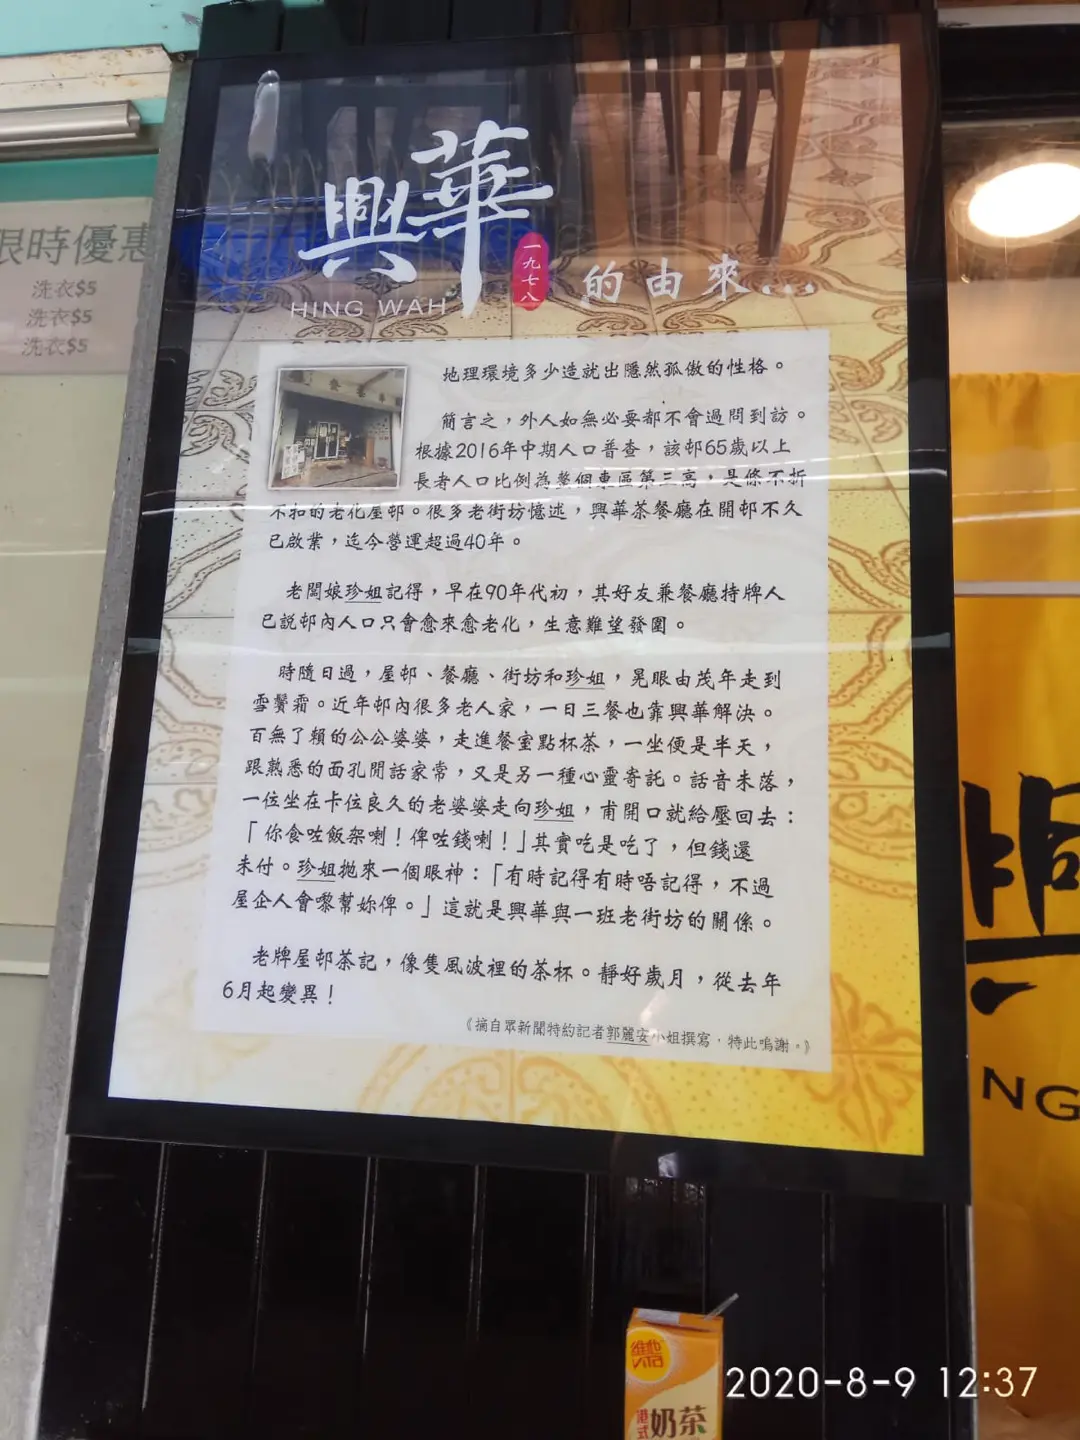 限時優惠
洗衣$5
洗衣$5
洗衣$5
興華
一九七八
HING WAH
的由來...
地理環境多少造就出隱然孤傲的性格。
簡言之，外人如無必要都不會過問到訪。
根據2016年中期人口普查，該邨65歲以上
長者人口比例為整個東區第三高，是條不折
不扣的老化屋邨。很多老街坊憶述，興華茶餐廳在開邨不久
已啟業，迄今營運超過40年。
老闆娘珍姐記得，早在90年代初，其好友兼餐廳持牌人
已説邨內人口只會愈來愈老化，生意難望發圍。
時隨日過，屋邨、餐廳、街坊和珍姐，晃眼由茂年走到
雪鬢霜。近年邨內很多老人家，一日三餐也靠興華解決。
百無了賴的公公婆婆，走進餐室點杯茶，一坐便是半天，
跟熟悉的面孔閒話家常，又是另一種心靈寄託。話音未落，
一位坐在卡位良久的老婆婆走向珍姐，甫開口就給壓回去：
「你食咗飯架喇！俾咗錢喇！」其實吃是吃了，但錢還
未付。珍姐拋來一個眼神：「有時記得有時唔記得，不過
屋企人會嚟幫妳俾。」這就是興華與一班老街坊的關係。
老牌屋邨茶記，像隻風波裡的茶杯。靜好歲月，從去年
6月起變異！
《摘自眾新聞特約記者郭麗安小姐撰寫，特此鳴謝。》
興
NG
維他
奶茶
2020-8-9 12:37